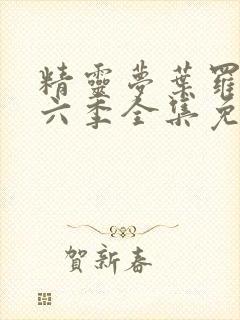 精靈夢葉羅
六季全集免
賀新春